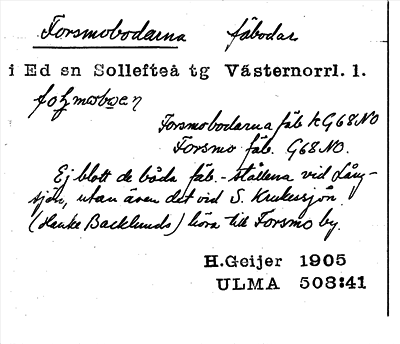 Forsmobodarna fäbodar
i Ed sn Sollefteå tg Västernorrl. l.
Forsmobodarna fäb kG68NO
Forsmo fäb. G68NO.
Ej blott de båda fäb.-ställena vid Lång-
sjön, utan även det vid S. Krukersjön
(Hanke Backlunds) höra till Forsmo by.
H.Geijer 1905
ULMA 508:41